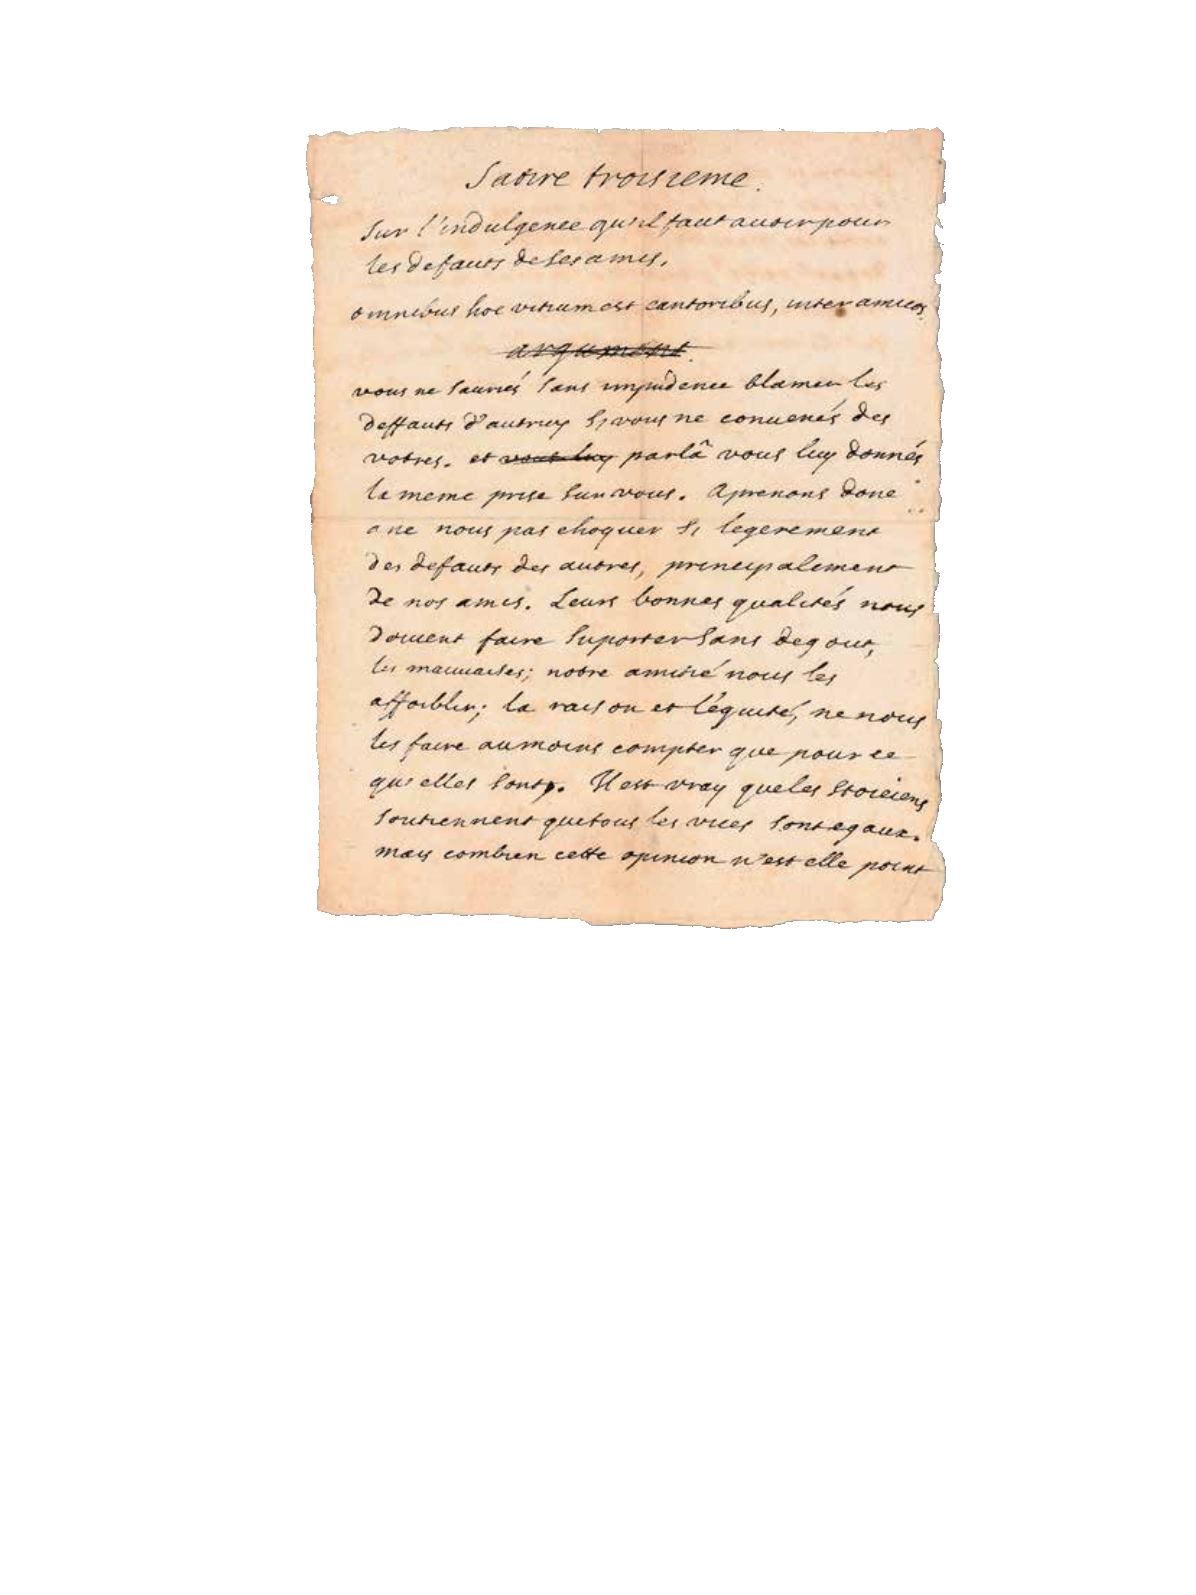 Satire troisieme.
Sur l'indulgence qu'il faut avoir pour
les defauts de ses amis.
omnibus hoc vitium est cantoribus, inter amicos
argument.
vous ne sauriés sans impudence blamer les
deffauts d'autruy si vous ne convenés des
votres. et vous luy parlà vous luy donnés
la meme prise sur vous. Aprenons donc
a ne nous pas choquer si legerement
des defauts des autres, principalement
de nos amis. Leurs bonnes qualités nous
doivent faire suporter sans degout,
les mauvaises; notre amitié nous les
affoiblir; la raison et l'équité, ne nous
les faire aumoins compter que pour ce
qu'elles sont. Il est vray que les Stoiciens
soutiennent que tous les vices sont egaux.
mais combien cette opinion n'est elle point